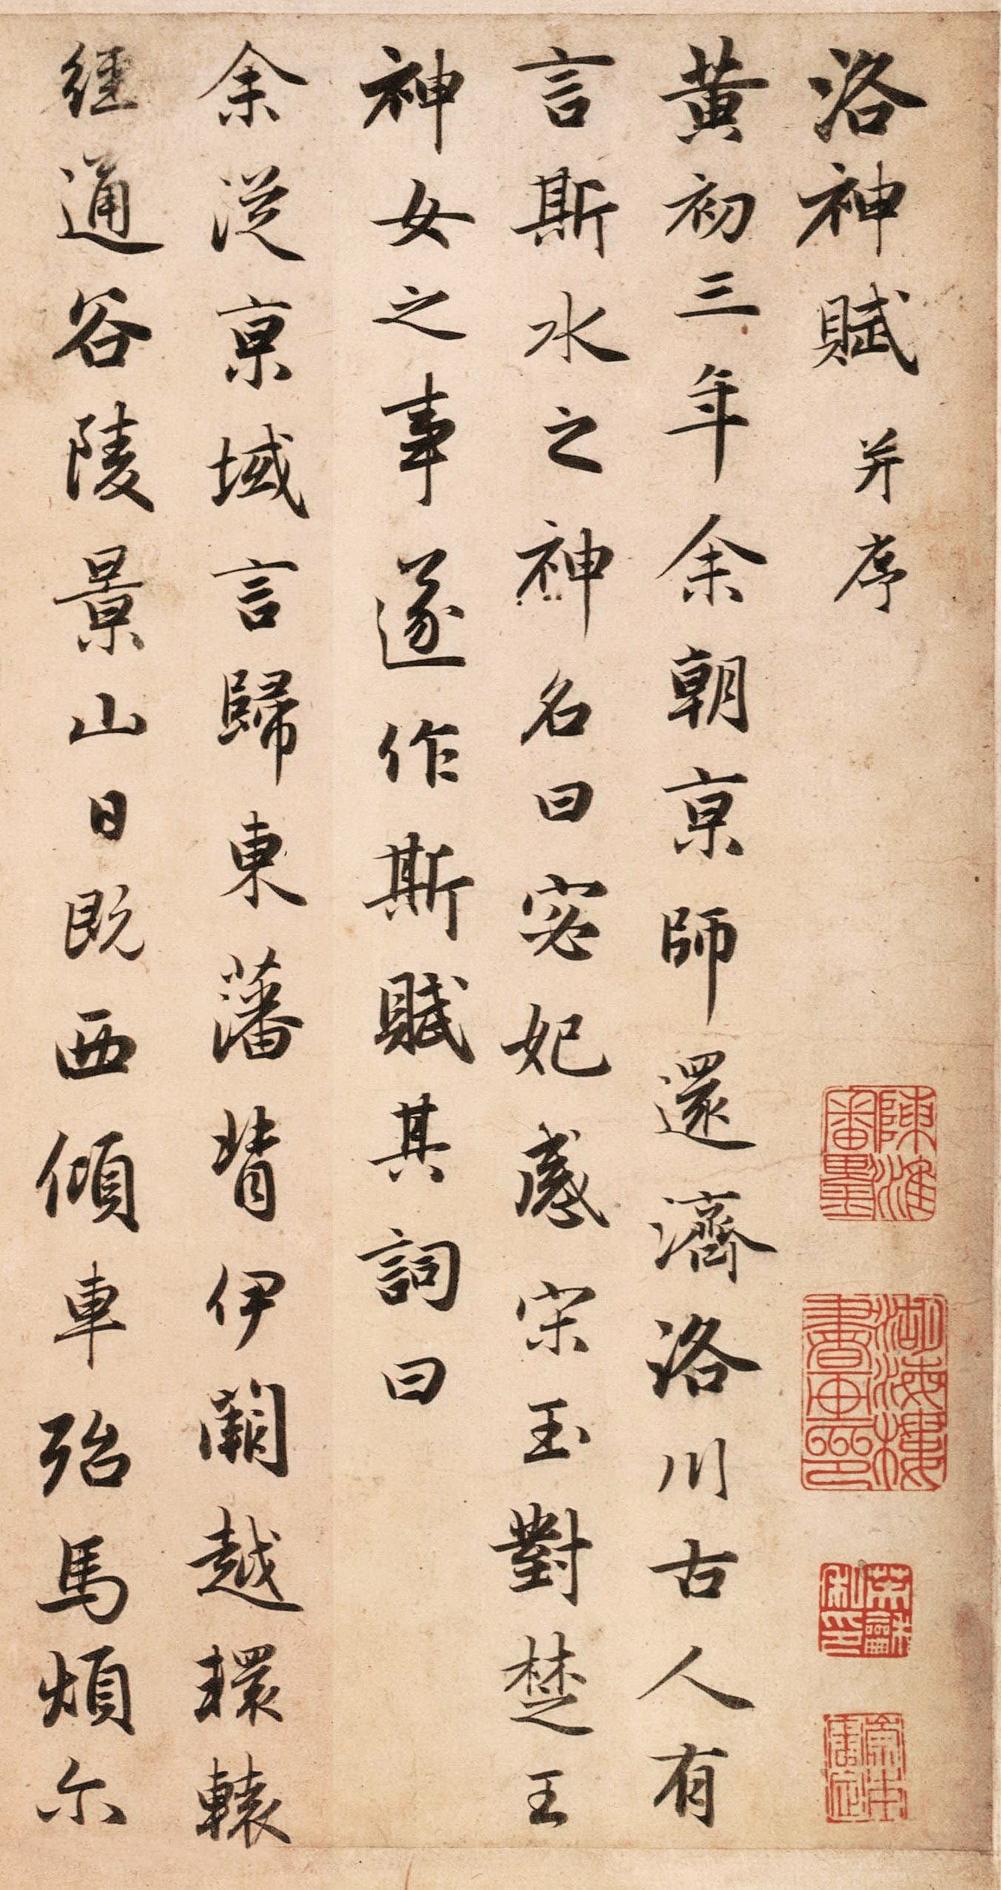 洛神賦 并序
黃初三年余朝亰師還濟洛川古人有
言斯水之神名曰宓妃感宋玉對楚王
神女之事遂作斯賦其詞曰
余從亰域言歸東藩背伊闕越轘轅
經通谷陵景山日既西傾車殆馬煩尔
湖海樓書畫印